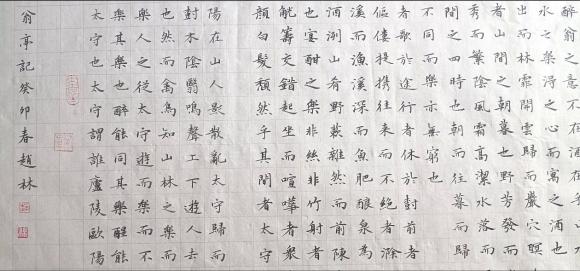 醉翁之意不在酒在
水之樂得之心而寓之酒也
出而林霏開雲歸而巖穴暝
者山間之朝暮也野芳發而
秀而繁陰風霜高潔水落而
間之四時也朝而往暮而歸
不同而樂亦無窮也
者歌於途行者休於樹前者
傴僂提攜往來而不絕者滁
溪而漁溪深而魚肥釀泉為
酒洌山肴野蔌雜然而前陳
也宴酣之樂非絲非竹射者
觥籌交錯起坐而喧嘩者眾
顏白髮頹然乎其間者太守
陽在山人影散亂太守歸而
林陰翳鳴聲上下遊人去
也然而禽鳥知山林之樂而不
樂人之從太守遊而樂而不
樂其樂也醉能同其樂醒能
太守也太守謂誰廬陵歐陽
翁亭記癸卯春趙林